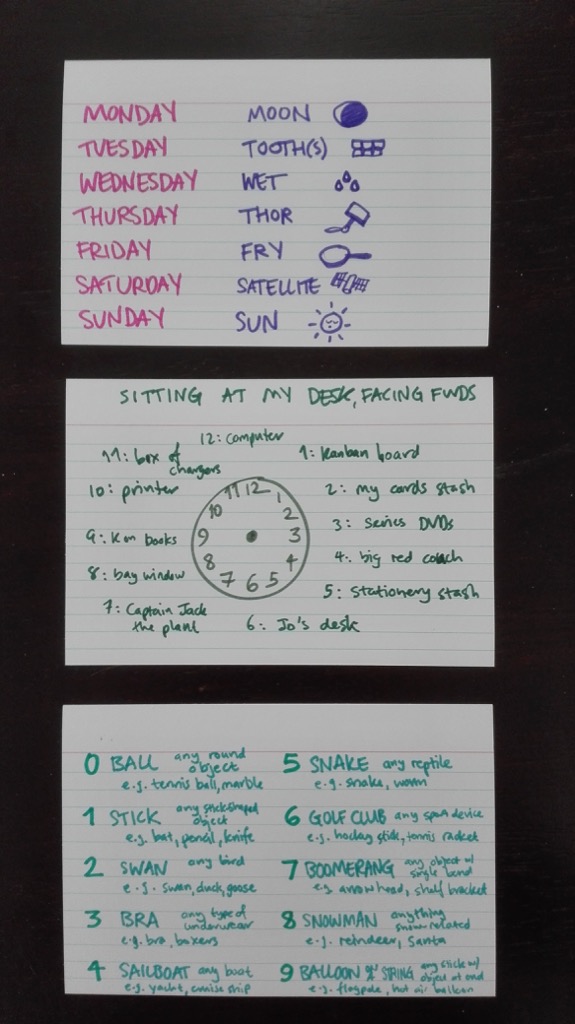 MONDAY MOON
TUESDAY TOOTH(S)
WEDNESDAY WET
THURSDAY THOR
FRIDAY FRY
SATURDAY SATELLITE
SUNDAY SUN
SITTING AT MY DESK, FACING FWDS
12: computer
11: box of chargers
1: Kanban board
10: printer
2: my cards stash
9: Km books
3: Series DVDs
8: bay window
4: big red couch
7: Captain Jack the plant
5: Stationery stash
6: Jo's desk
11 12 1
10 2
9 3
8 4
7 6 5
0 BALL any round object
e.g. tennis ball, marble
1 STICK any stick shaped object
e.g. bat, pencil, knife
2 SWAN any bird
e.g. swan, duck, goose
3 BRA any type of underwear
e.g. bra, boxers
4 SAILBOAT any boat
e.g. yacht, cruise ship
5 SNAKE any reptile
e.g. snake, worm
6 GOLF CLUB any sport device
e.g. hockey stick, tennis racket
7 BOOMERANG any object w/ single bend
e.g. arrowhead, shelf bracket
8 SNOWMAN anything snow related
e.g. reindeer, Santa
9 BALLOON STRING any stick w/ object at end
e.g. flagpole, hot air balloon